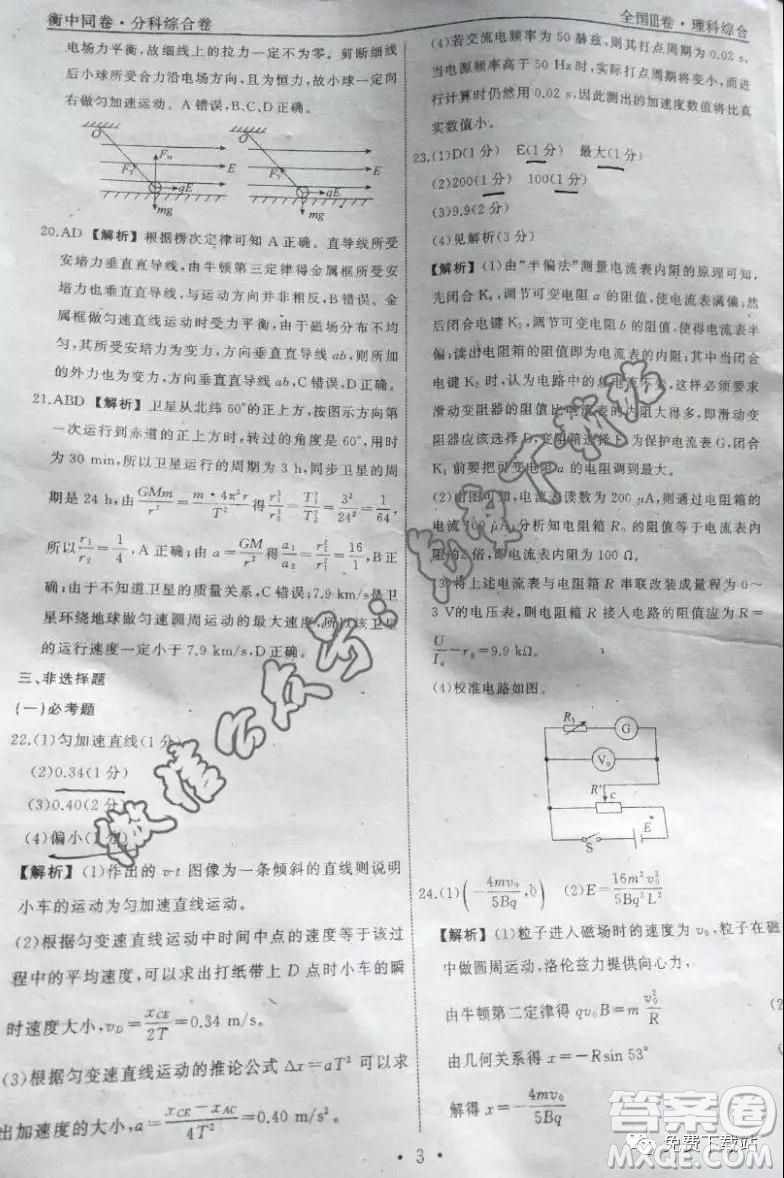 衡中同卷·分科综合卷
全国Ⅲ卷·理科综合
电场力平衡,故细线上的拉力一定不为零。剪断细线
后小球所受合力沿电场方向,且为恒力,故小球一定向
右做匀加速运动。A错误,B、C、D正确。
O FN FT E qE mg
O E FT qE mg
20.AD 【解析】根据楞次定律可知A正确。直导线所受
安培力垂直直导线,由牛顿第三定律得金属框所受安
培力垂直导线,与运动方向并非相反,B错误。金
属框做匀速直线运动时受力平衡,由于磁场分布不均
匀,其所受安培力为变力,且垂直于直导线ab,则所加
的外力也为变力,方向垂直于直导线ab。
21.ABD 【解析】卫星从北纬60°的正上方,按图示方向第
一次运行到赤道的正上方时,转过的角度是60°,用时
为30 min,所以卫星运行的周期为3 h,同步卫星的周
期是24 h,由GMm/r²=m·4π²r/T²得r₁³/r₂³=T₁²/T₂²=3²/24²=1/64,
所以r₁/r₂=1/4,A正确;由a=GM/r²得a₁/a₂=r₂²/r₁²=16/1,B正
确;由于不知道卫星的质量关系,C错误;7.9 km/s是卫
星环绕地球做匀速圆周运动的最大速度,所以该卫星
的运行速度一定小于7.9 km/s,D正确。
三、非选择题
(一)必考题
22.(1)匀加速直线(1分)
(2)0.34(1分)
(3)0.40(2分)
(4)偏小(1分)
【解析】(1)作出的v-t图像为一条倾斜的直线则说明
小车的运动为匀加速直线运动。
(2)根据匀变速直线运动中时间中点的速度等于该过
程中的平均速度,可以求出打纸带上D点时小车的瞬
时速度大小,vD=xCE/2T=0.34 m/s。
(3)根据匀变速直线运动的推论公式Δx=aT²可以求
出加速度的大小,a=(xCE-xAC)/4T²=0.40 m/s。
(4)若交流电频率为50赫兹,则其打点周期为0.02 s,
当电源频率高于50 Hz时,实际打点周期将变小,而进
行计算时仍然用0.02 s,因此测出的加速度数值将比真
实数值小。
23.(1)D(1分) E(1分) 最大(1分)
(2)200(1分) 100(1分)
(3)9.9(2分)
(4)见解析(3分)
【解析】(1)由“半偏法”测量电流表内阻的原理可知,
先闭合K₁,调节可变电阻a的阻值,使电流表满偏;然
后闭合电键K₂,调节可变电阻b的阻值,使得电流表半
偏;读出电阻箱的阻值即为电流表的内阻;其中在闭合
电键K₂时,认为电路中的总电流不变,则必须要使得
滑动变阻器的阻值比电流表的内阻大得多,即滑动变
阻器应该选择E,电阻箱选择D;为保护电流表,闭合
K₁前要把可变电阻a的电阻调到最大。
(2)由图可知,电流表读数为200 μA,则通过电阻箱的
电流100 μA;分析知电阻箱R₀的阻值等于电流表内
阻的2倍,即电流表内阻为100 Ω。
(3)将上述电流表与电阻箱R串联改装成量程为0~
3 V的电压表,则电阻箱R接入电路的阻值应为R=
U/Ig-r₀=9.9 kΩ。
(4)校准电路如图。
R₁ G V₀ R′ c S E
24.(1)(-4mv₀/5Bq,0) (2)E=16m²v₀³/5Bq²L²
【解析】(1)粒子进入磁场时的速度为v₀,粒子在磁场
中做圆周运动,洛伦兹力提供向心力,
由牛顿第二定律得qv₀B=mv₀²/R
由几何关系得x=-Rsin 53°
解得x=-4mv₀/5Bq
·3·
答案圈
免费下载站